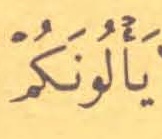 يَأْلُونَكُمْ